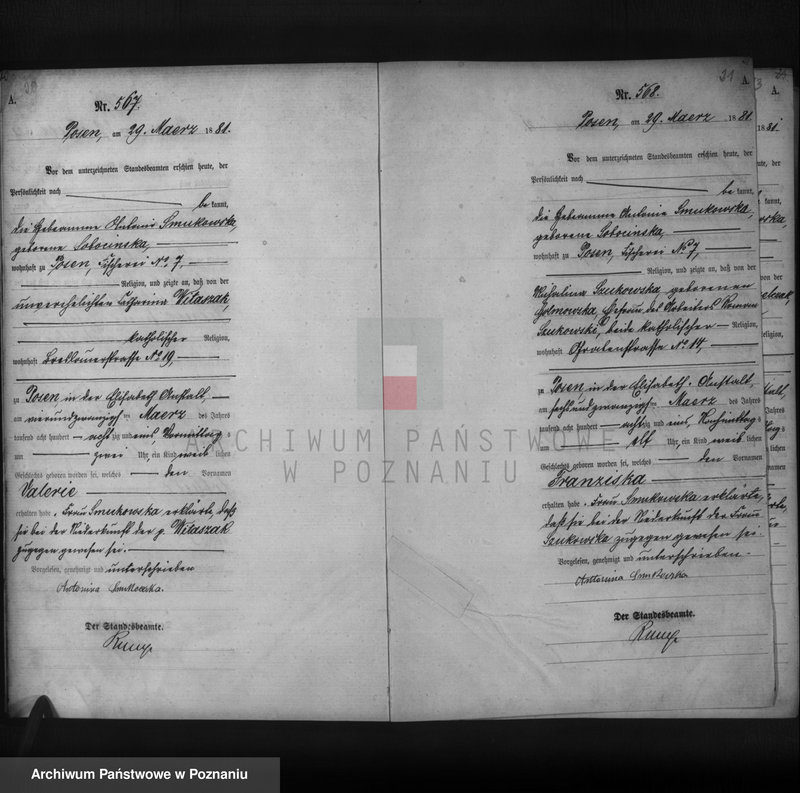 A.
Nr. 567.
Posen, am 29. Maerz 1881.
Vor dem unterzeichneten Standesbeamten erschien heute, der
Persönlichkeit nach
be kannt,
die Hebamme Antonie Smukowska,
geborene Sobocinska,
wohnhaft zu Posen, Fischerei No 7,
Religion, und zeigte an, daß von der
unverehelichten Catharina Witaszak,
katholischer Religion,
wohnhaft Breslauerstrasse No 19,
zu Posen in der Elisabeth Anstalt,
am vierundzwanzigsten Maerz des Jahres
tausend acht hundert achtzig und eins Vormittags
um zwei Uhr, ein Kind weib lichen
Geschlechts geboren worden sei, welches den Vornamen
Valerie
erhalten habe. Frau Smukowska erklärte, daß
sie bei der Niederkunft der p. Witaszak
zugegen gewesen sei.
Vorgelesen, genehmigt und unterschrieben
Antonina Smukowska.
Der Standesbeamte.
31
A.
Nr. 568.
Posen, am 29. Maerz 1881.
Vor dem unterzeichneten Standesbeamten erschien heute, der
Persönlichkeit nach
be kannt,
die Hebamme Antonie Smukowska,
geborene Sobocinska,
wohnhaft zu Posen, Fischerei No 7,
Religion, und zeigte an, daß von der
Michalina Szukowska geborenen
Ehefrau des Arbeiters Roman
Szukowski, beide katholischer Religion,
wohnhaft Grabenstrasse No 14,
zu Posen, in der Elisabeth-Anstalt,
am sechsundzwanzigsten Maerz des Jahres
tausend acht hundert achtzig und eins, Nachmittags
um elf Uhr, ein Kind weib lichen
Geschlechts geboren worden sei, welches den Vornamen
Franziska
erhalten habe. Frau Smukowska erklärte,
daß sie bei der Niederkunft der Frau
Szukowska zugegen gewesen sei.
Vorgelesen, genehmigt und unterschrieben
Antonina Smukowska
Der Standesbeamte.
A.
ARCHIWUM PAŃSTWOWE
W POZNANIU
Archiwum Państwowe w Poznaniu